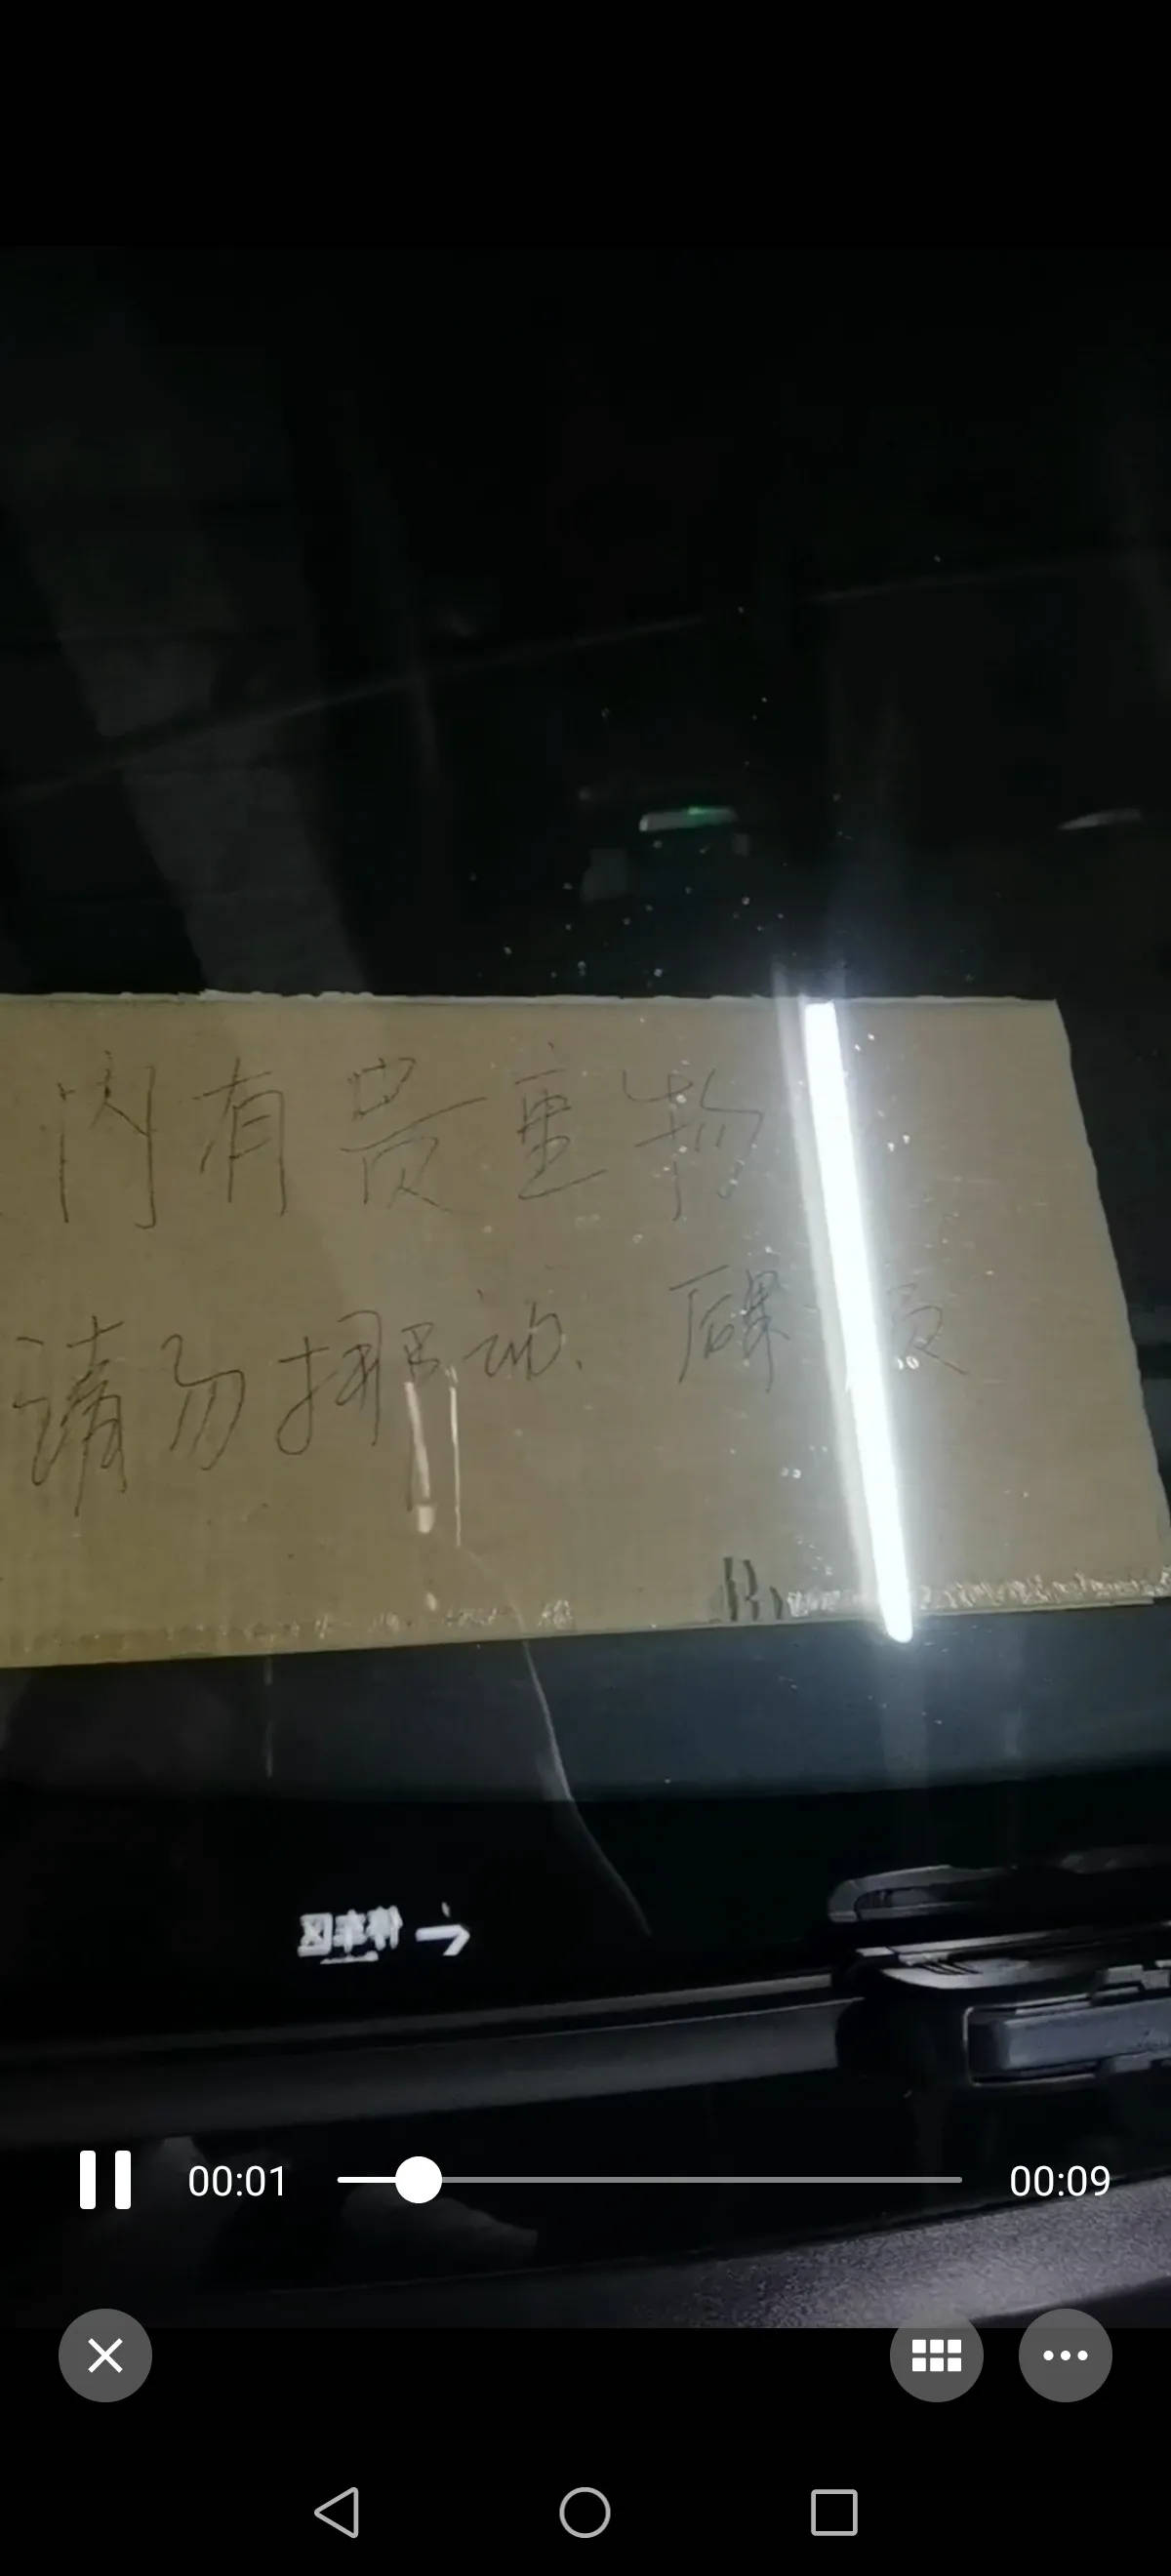 内有贵重物
请勿挪动、后果
00:01
00:09